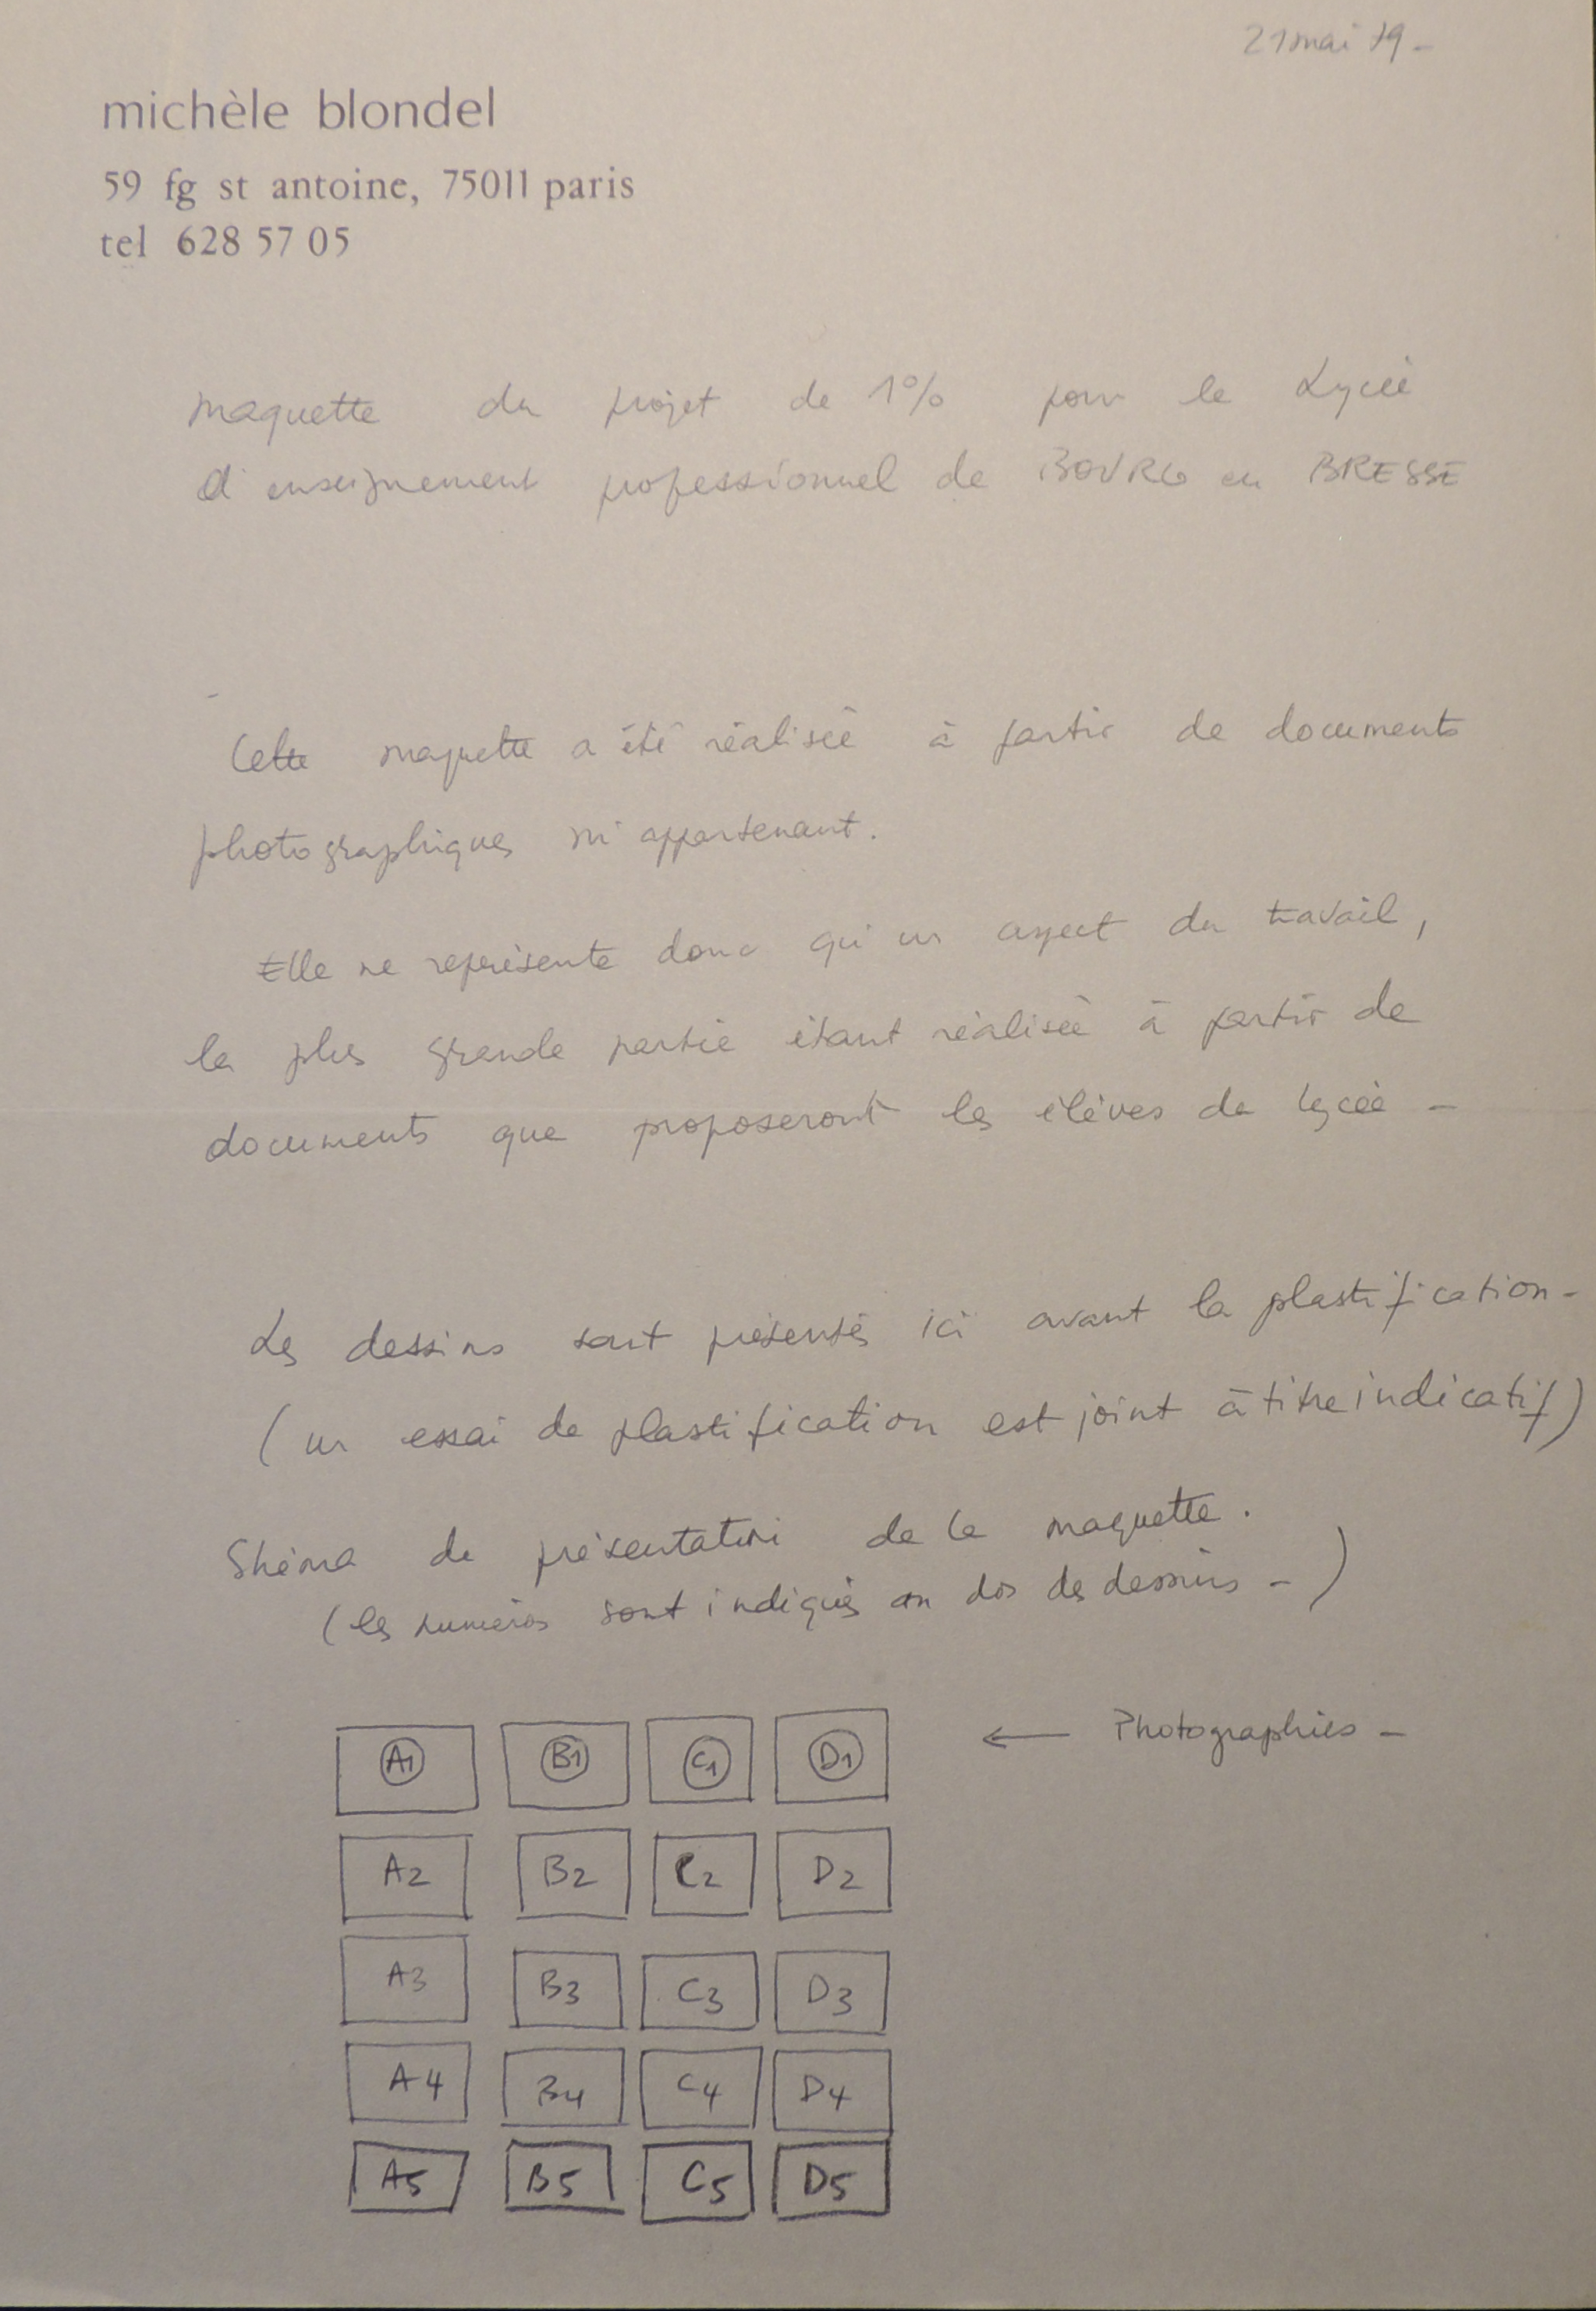 21 mai 79 -
michèle blondel
59 fg st antoine, 75011 paris
tel 628 57 05
maquette du projet de 1% pour le Lycée
d'enseignement professionnel de BOURG en BRESSE
Cette maquette a été réalisée à partir de documents
photographiques m'appartenant.
Elle ne représente donc qu'un aspect du travail,
la plus grande partie étant réalisée à partir de
documents que proposeront les élèves du lycée -
Les dessins sont présentés ici avant la plastification -
(un essai de plastification est joint à titre indicatif)
Shéma de présentation de la maquette.
(les numéros sont indiqués au dos des dessins - )
A1 B1 C1 D1 ← Photographies -
A2 B2 C2 D2
A3 B3 C3 D3
A4 B4 C4 D4
A5 B5 C5 D5